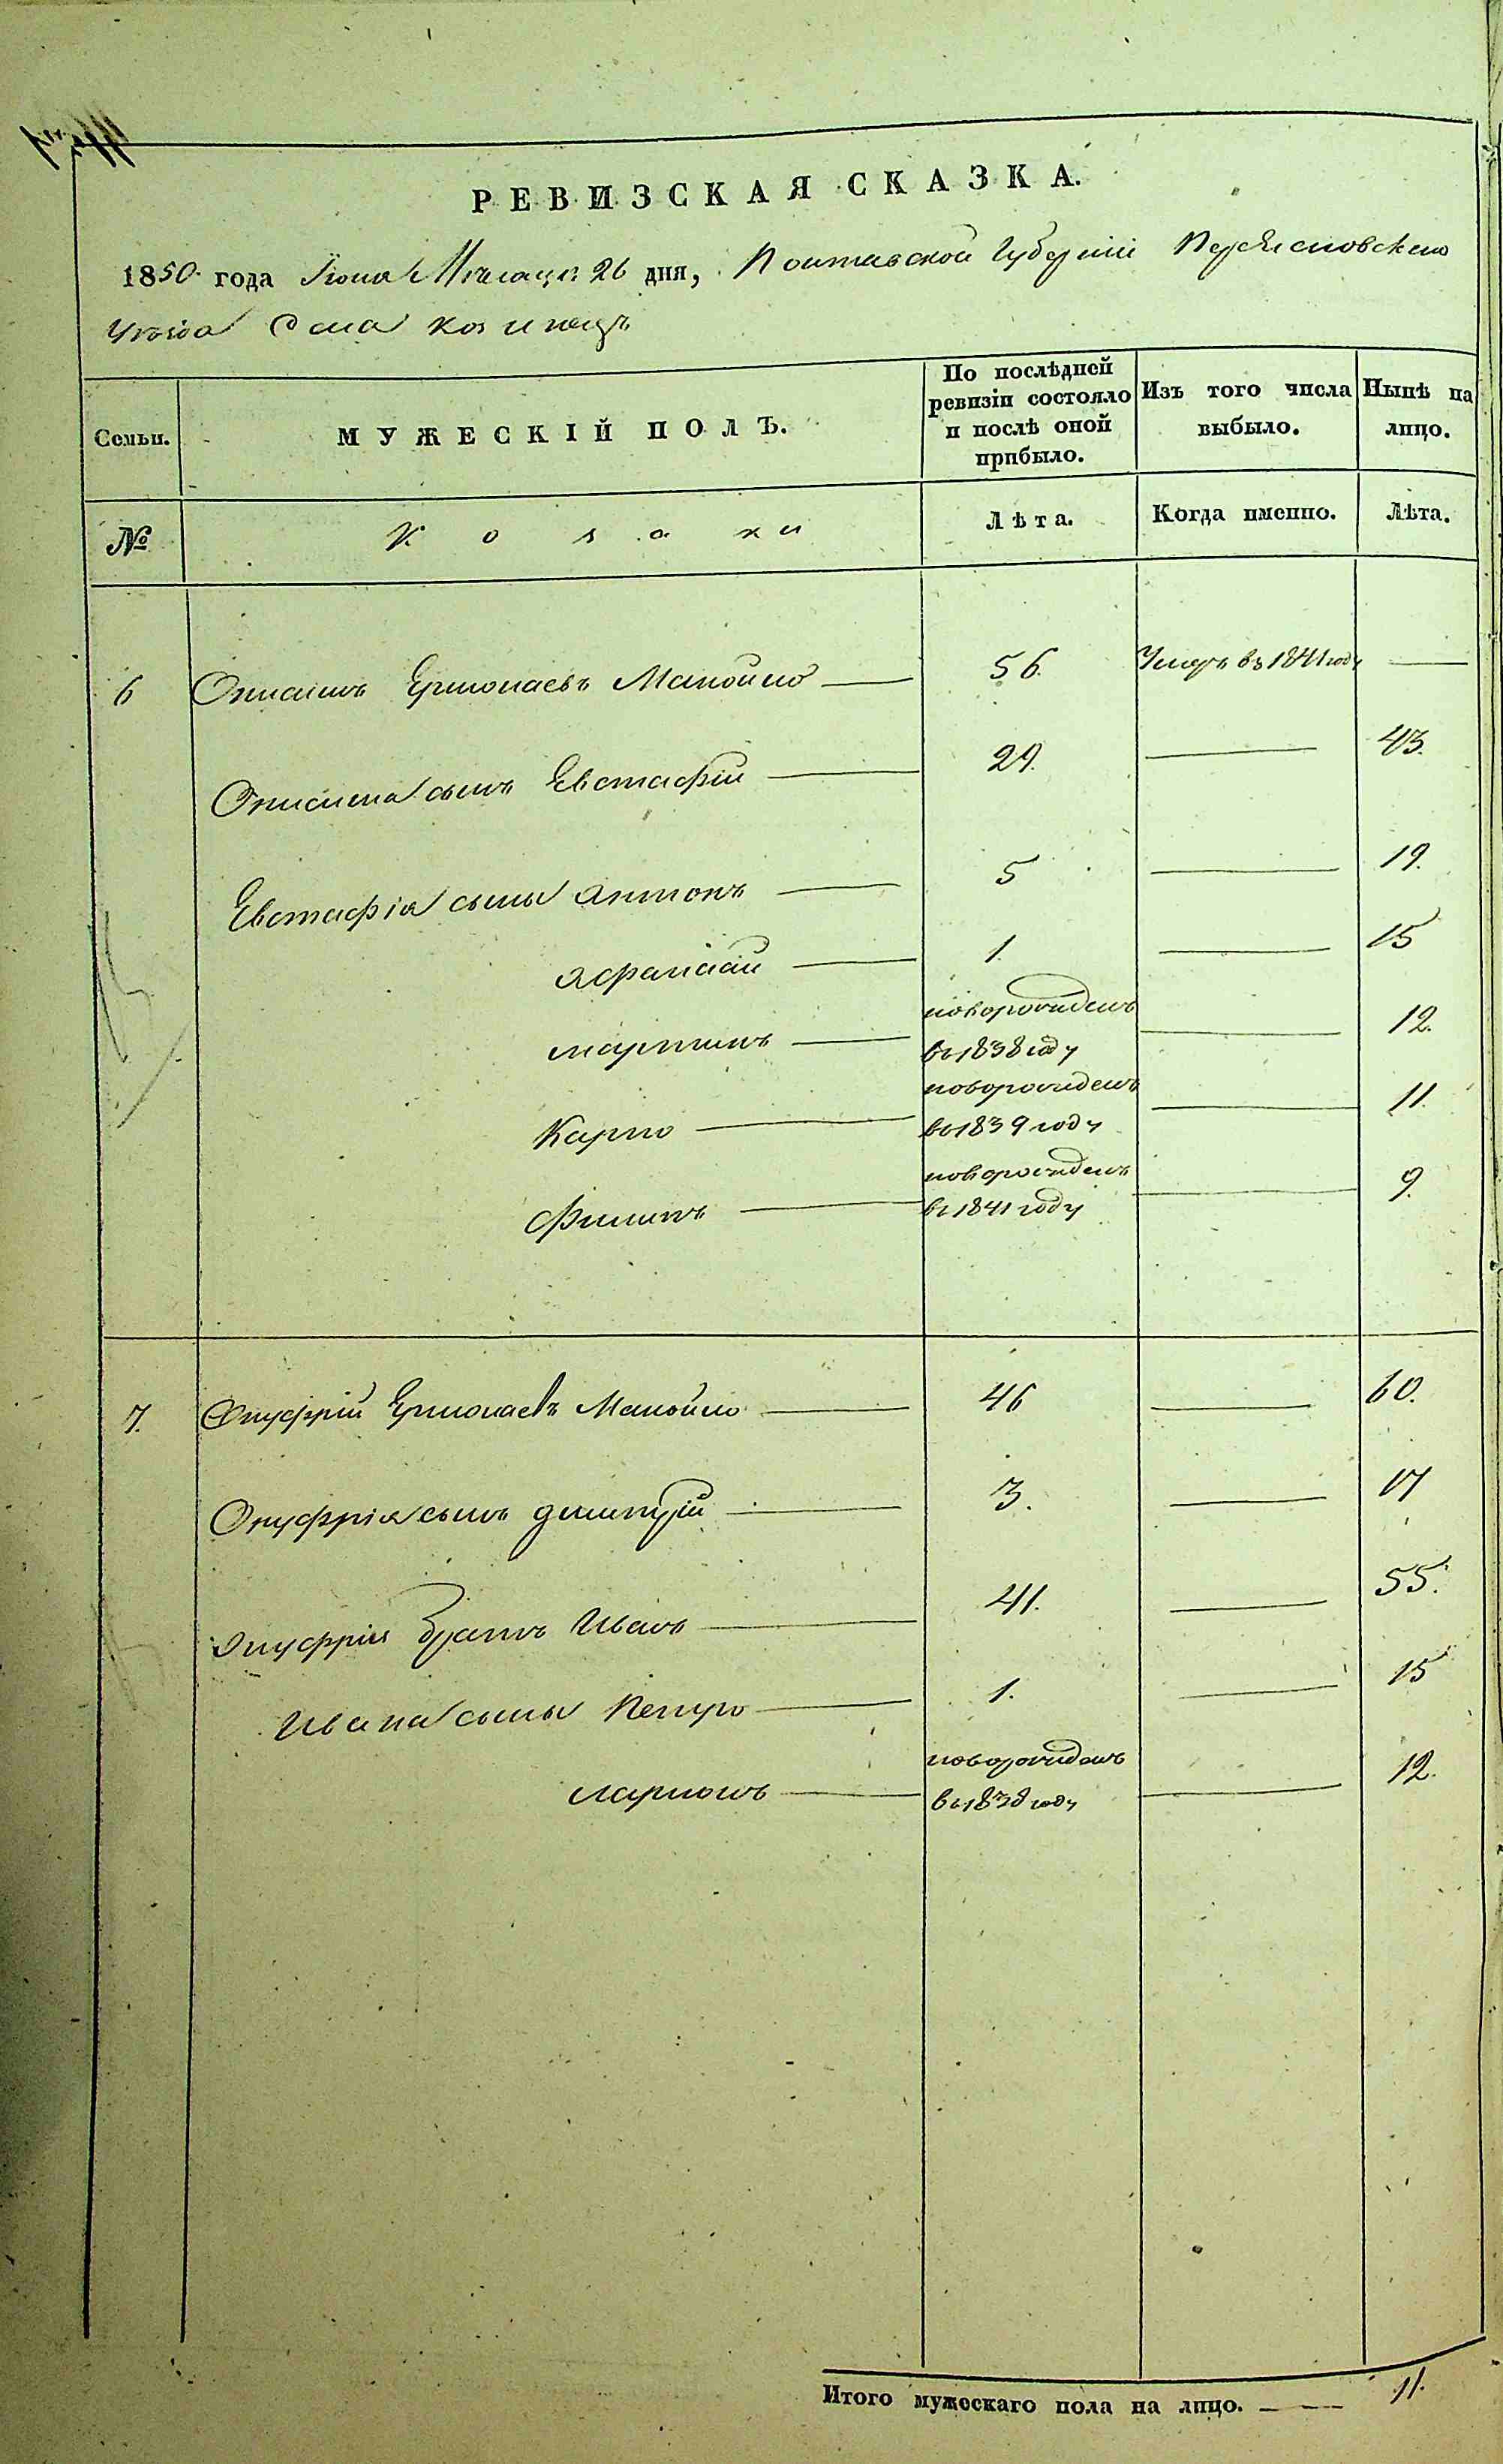 РЕВИЗСКАЯ СКАЗКА.
1850 года Июня Мѣсяца 26 дня, Полтавской Губерніи Переясловскаго
Уѣзда Села Козинецъ
Семьи.
МУЖЕСКІЙ ПОЛЪ.
По послѣдней ревизіи состояло и послѣ оной прибыло.
Изъ того числа выбыло.
Нынѣ на лицо.
№
Козаки
Лѣта.
Когда именно.
Лѣта.
6 Ермолаевъ Манойло 56. Умеръ въ 1841 году
сынъ Евстафій 29. 43.
Евстафія сыны Антонъ 5 19.
Афанасій 1. 15
Мартинъ новорожденъ въ 1838 году 12.
Карпо новорожденъ въ 1839 году 11.
Филипъ новорожденъ въ 1841 году 9.
7. Онуфрій Ермолаевъ Манойло 46 60.
Онуфрія сынъ Димитрій 3. 17
Онуфрія братъ Иванъ 41. 55.
Ивана сыны Петро 1. 15
Ларионъ новорожденъ въ 1838 году 12.
Итого мужескаго пола на лицо. 11.